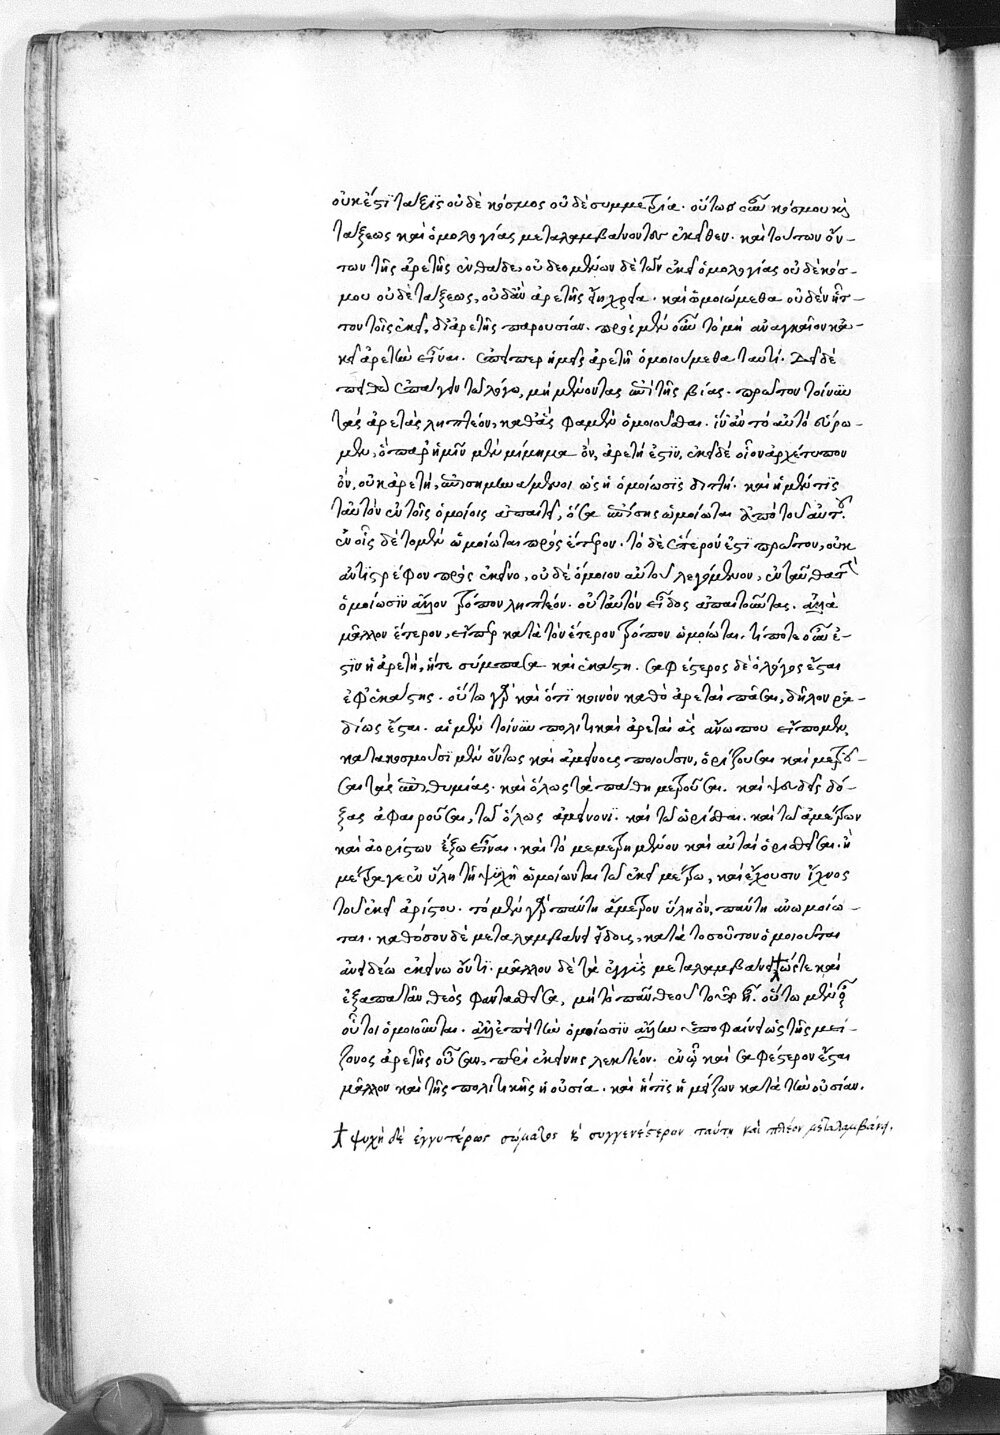 οὐκ ἔστι τάξις οὐδὲ κόσμος οὐδὲ συμμετρία. οὕτως οὖν κόσμου καὶ
τάξεως καὶ ὁμολογίας μεταλαμβάνοντες ἐκεῖθεν. καὶ τούτων ὄν-
των τῆς ἀρετῆς ἐνθάδε, οὐ δεομένων δὲ τῶν ἐκεῖ ὁμολογίας οὐδὲ κόσ-
μου οὐδὲ τάξεως, οὐδ' ἂν ἀρετῆς εἴη χρεία. καὶ ὁμοιώμεθα οὐδὲν ἧτ-
τον τοῖς ἐκεῖ, δι' ἀρετῆς παρουσίαν. πρὸς μὲν οὖν τὸ μὴ ἀναγκαῖον κἀ-
κεῖ ἀρετὴν εἶναι. ἐπείπερ ἡμεῖς ἀρετῇ ὁμοιούμεθα ταυτί. δεῖ δὲ
πειθὼ ἐπάγειν τῷ λόγῳ, μὴ μένοντας ἐπὶ τῆς βίας. πρῶτον τοίνυν
τὰς ἀρετὰς ληπτέον, καθ' ἃς φαμὲν ὁμοιοῦσθαι. ἵν' ἂν τὸ αὐτὸ εὕρω-
μεν, ὃ παρ' ἡμῖν μὲν μίμημα ὂν, ἀρετή ἐστιν, ἐκεῖ δὲ οἷον ἀρχέτυπον
ὂν, οὐκ ἀρετὴ, ἐπισημηνάμενοι ὡς ἡ ὁμοίωσις διττή. καὶ ἡ μέν τις
ταὐτὸν ἐν τοῖς ὁμοίοις ἀπαιτεῖ, ὅσα ἐπίσης ὡμοίωται ἀπὸ τοῦ αὐτοῦ.
ἐν οἷς δὲ τὸ μὲν ὡμοίωται πρὸς ἕτερον. τὸ δὲ ἕτερόν ἐστι πρῶτον, οὐκ
ἀντιστρέφον πρὸς ἐκεῖνο, οὐδὲ ὅμοιον αὐτοῦ λεγόμενον, ἐνταῦθα τὴν
ὁμοίωσιν ἄλλον τρόπον ληπτέον. οὐ ταὐτὸν εἶδος ἀπαιτοῦντας. ἀλλὰ
μᾶλλον ἕτερον, εἴπερ κατὰ τὸν ἕτερον τρόπον ὡμοίωται. τί ποτε οὖν ἐ-
στιν ἡ ἀρετὴ, ἥτε σύμπασα καὶ ἑκάστη. σαφέστερος δὲ ὁ λόγος ἔσται
ἐφ' ἑκάστης. οὕτω γὰρ καὶ ὅτι κοινὸν καθὸ ἀρεταὶ πᾶσαι, δῆλον ῥᾳ-
δίως ἔσται. αἱ μὲν τοίνυν πολιτικαὶ ἀρεταὶ ἃς ἄνω που εἴπομεν,
κατακοσμοῦσι μὲν ὄντως καὶ ἀμείνους ποιοῦσιν, ὁρίζουσαι καὶ μετροῦ-
σαι τὰς ἐπιθυμίας. καὶ ὅλως τὰ πάθη μετροῦσαι. καὶ ψευδεῖς δό-
ξας ἀφαιροῦσαι, τῷ ὅλως ἀμείνονι. καὶ τῷ ὡρίσθαι. καὶ τῶν ἀμέτρων
καὶ ἀορίστων ἔξω εἶναι. καὶ τὸ μεμετρημένον καὶ αὐταὶ ὁρισθεῖσαι. ᾗ
μέτρα γε ἐν ὕλῃ τῇ ψυχῇ ὡμοίωνται τῷ ἐκεῖ μέτρῳ, καὶ ἔχουσιν ἴχνος
τοῦ ἐκεῖ ἀρίστου. τὸ μὲν γὰρ πάντη ἄμετρον ὕλη ὂν, πάντη ἀνωμοίω-
ται. καθόσον δὲ μεταλαμβάνει εἴδους, κατὰ τοσοῦτον ὁμοιοῦται
ἀνειδέῳ ἐκείνῳ ὄντι. μᾶλλον δὲ τὰ ἐγγὺς μεταλαμβάνει ☩ ὥστε καὶ
ἐξαπατᾶν, θεὸς φαντασθεῖσα, μὴ τὸ πᾶν θεοῦ τοῦτο ᾖ. οὕτω μὲν οὖν
οὗτοι ὁμοιοῦνται. ἀλλ' ἐπεὶ τὴν ὁμοίωσιν ἄλλην ὑποφαίνει ὡς τῆς μεί-
ζονος ἀρετῆς οὖσαν, περὶ ἐκείνης λεκτέον. ἐν ᾧ καὶ σαφέστερον ἔσται
μᾶλλον καὶ τῆς πολιτικῆς ἡ οὐσία. καὶ ἥτις ἡ μείζων κατὰ τὴν οὐσίαν.
☩ ψυχὴ δὲ ἐγγυτέρως σώματος καὶ συγγενέστερον ταύτῃ καὶ πλέον μεταλαμβάνει.